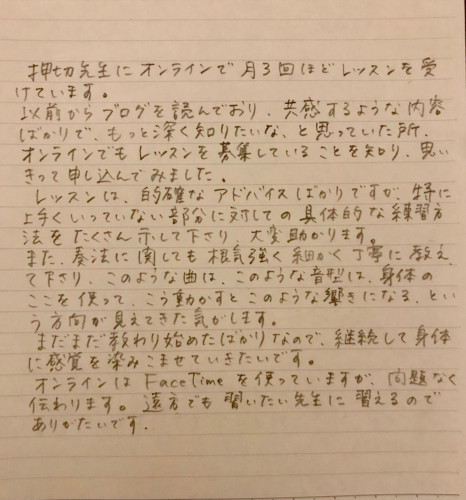 押切先生にオンラインで月3回ほどレッスンを受
けています。
以前からブログを読んでおり、共感するような内容
ばかりで、もっと深く知りたいな、と思っていた所、
オンラインでもレッスンを募集していることを知り、思い
きって申し込んでみました。
レッスンは、的確なアドバイスばかりですが、特に
上手くいっていない部分に対しての具体的な練習方
法をたくさん示して下さり、大変助かります。
また、奏法に関しても根気強く細かく丁寧に教え
て下さり、このような曲は、このような音型は、身体の
ここを使って、こう動かすとこのような響きになる、とい
う方向が見えてきた気がします。
まだまだ教わり始めたばかりなので、継続して身体
に感覚を染みこませていきたいです。
オンラインはFaceTimeを使っていますが、問題なく
伝わります。遠方でも習いたい先生に習えるので
ありがたいです.